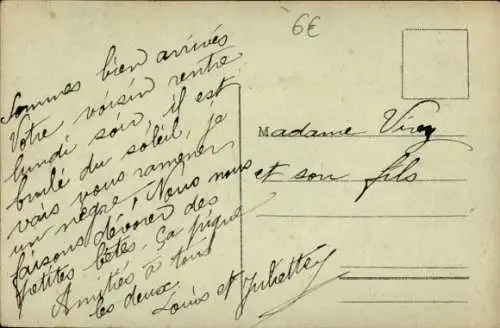 6€
Sommes bien arrivés
Votre voisin rentre
lundi soir, il est
brulé du soleil, je
vais vous ramener
un nègre, Nous nous
faisons dévorer des
petites bêtes. Ça pique
Amitiés à tous
les deux.
Louis et Juliette
Madame Virey
et son fils